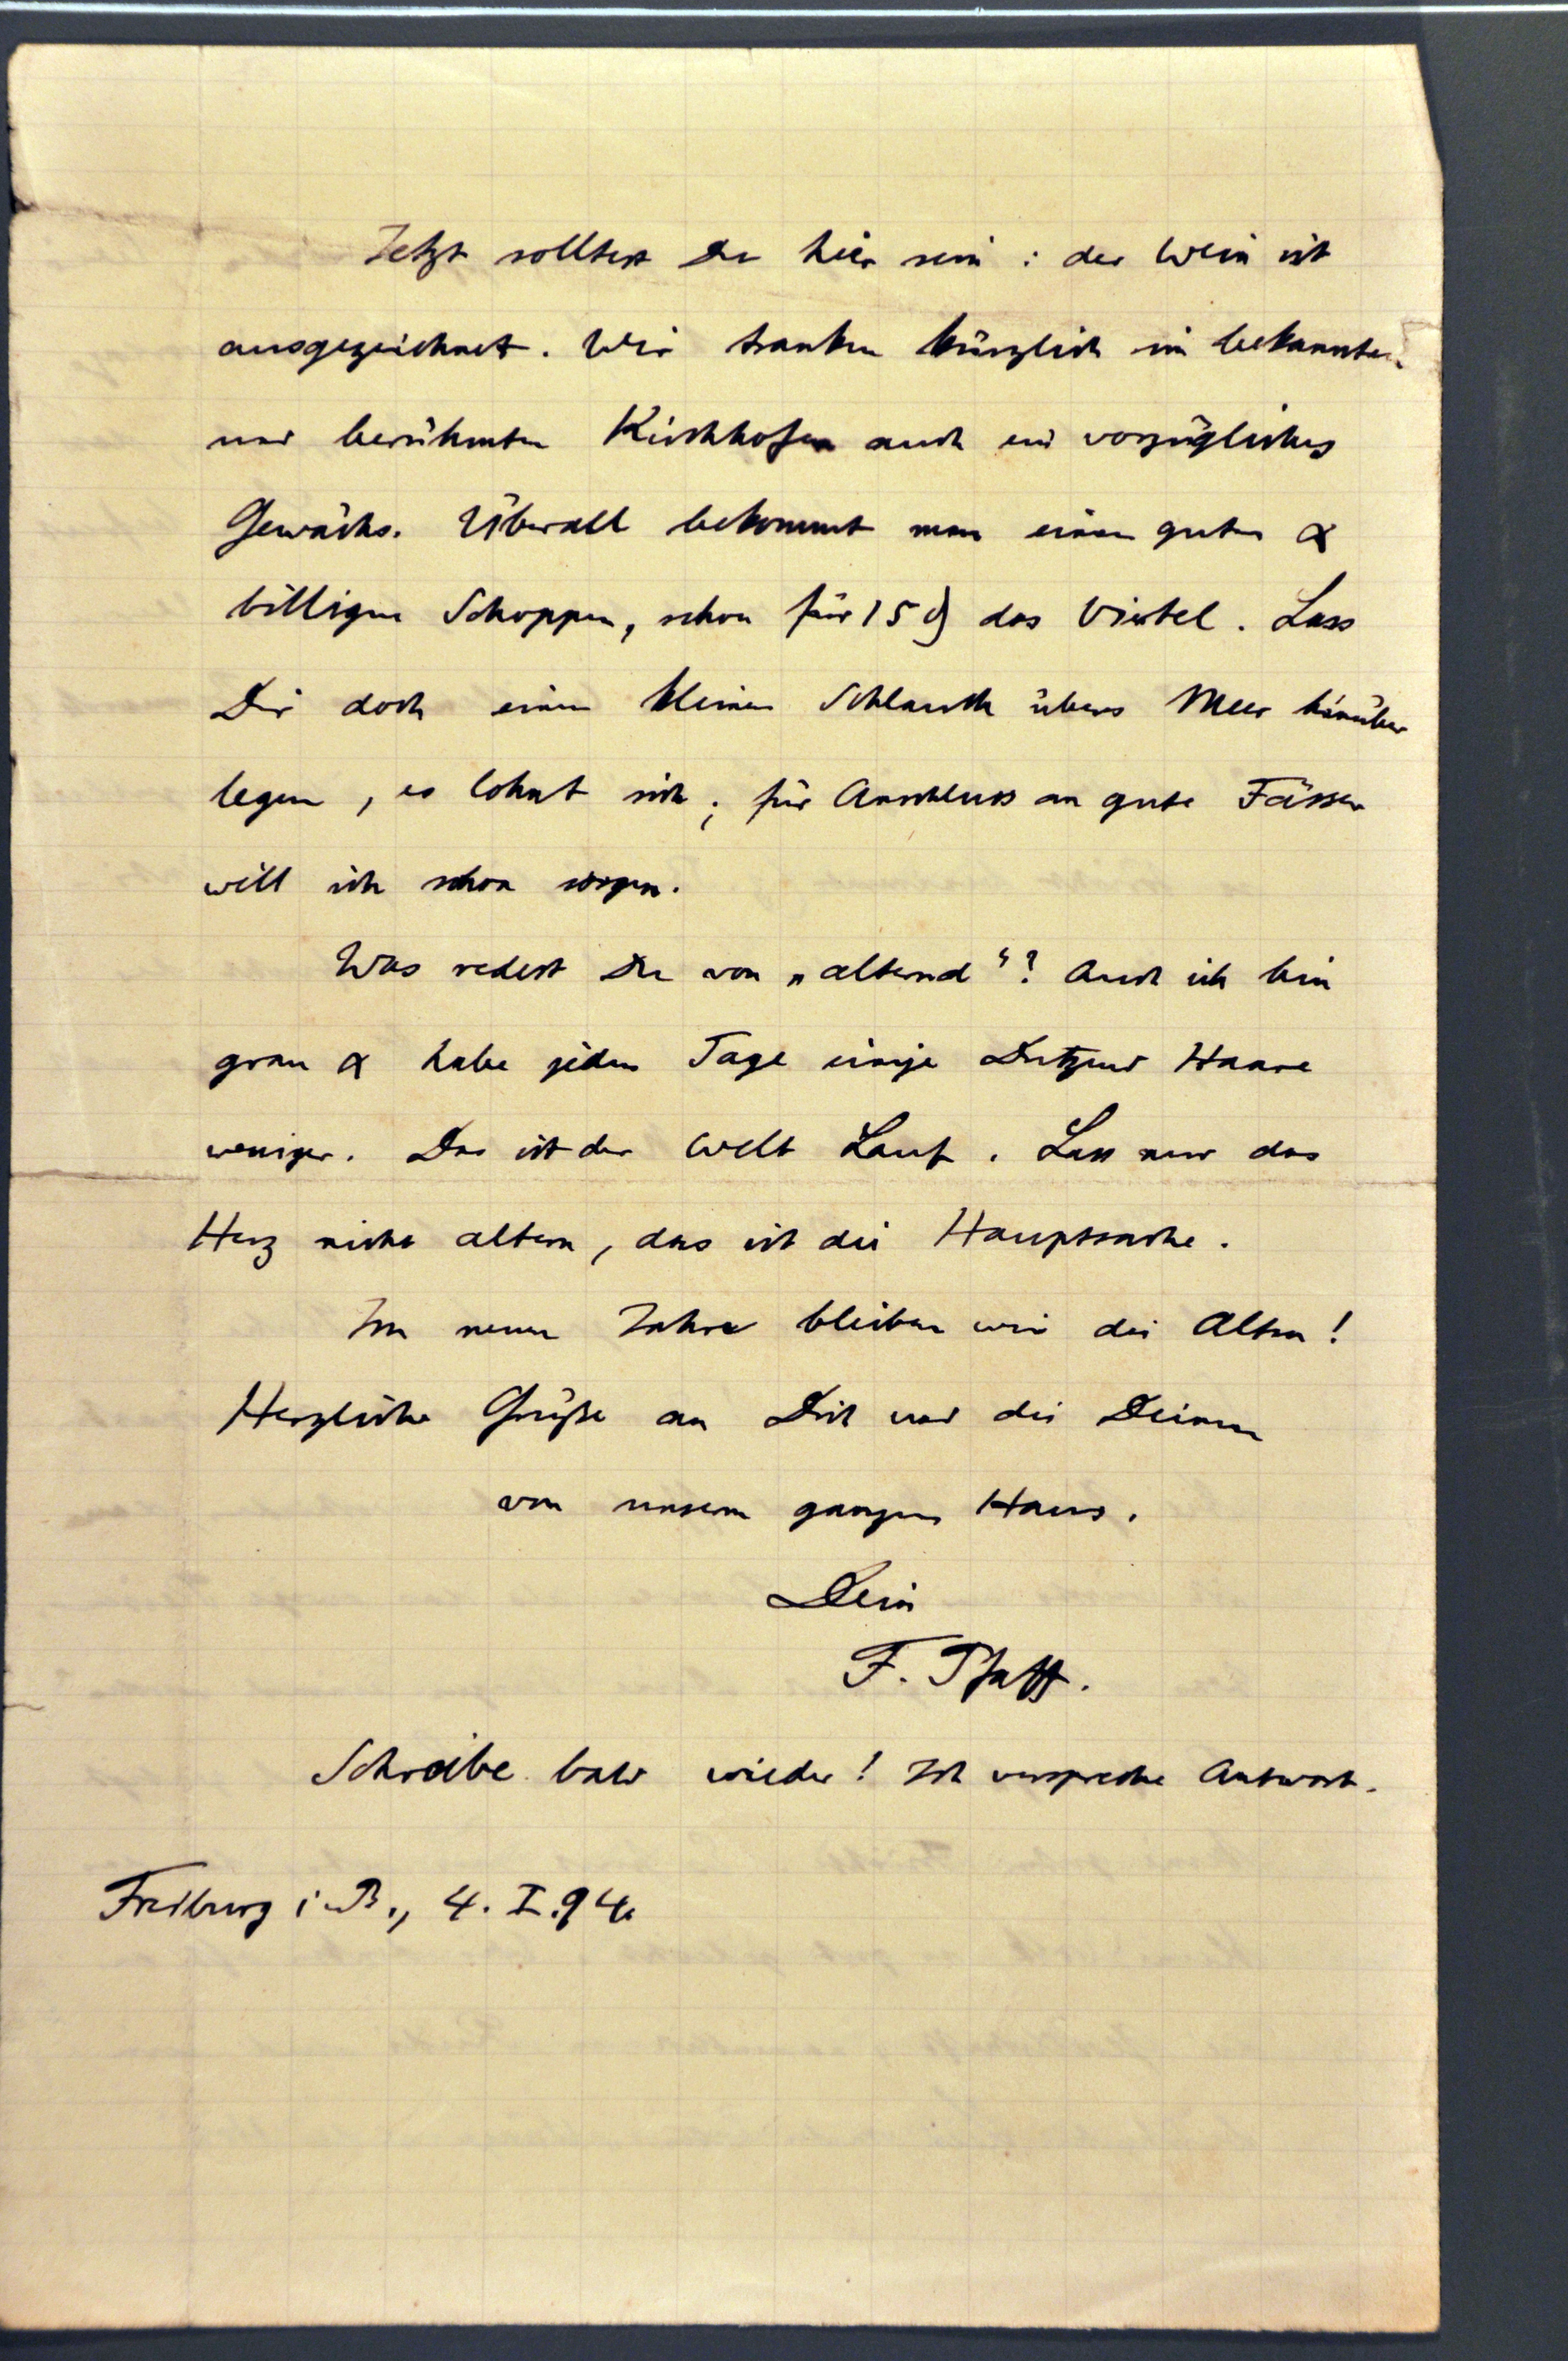 Jetzt solltest Du hier sein: der Wein ist
ausgezeichnet. Wir tranken kürzlich im bekannten
und berühmten Kirchhofen auch ein vorzügliches
Gewächs. Überall bekommt man einen guten &
billigen Schoppen, schon für 15 ₰ das Viertel. Lass
Dir doch einen kleinen Schlauch übers Meer hinüber
legen, es lohnt sich; für Anschluss an gute Fässer
will ich schon sorgen.
Was redest Du von „alternd“? Auch ich bin
grau & habe jeden Tage einige Dutzend Haare
weniger. Das ist der Welt Lauf. Lass nur das
Herz nicht altern, das ist die Hauptsache.
Im neuen Jahre bleiben wir die Alten!
Herzliche Grüße an Dich und die Deinen
von unserm ganzen Haus.
Dein
F. Pfaff.
Schreibe bald wieder! Ich verspreche Antwort.
Freiburg i. B., 4. I. 94.